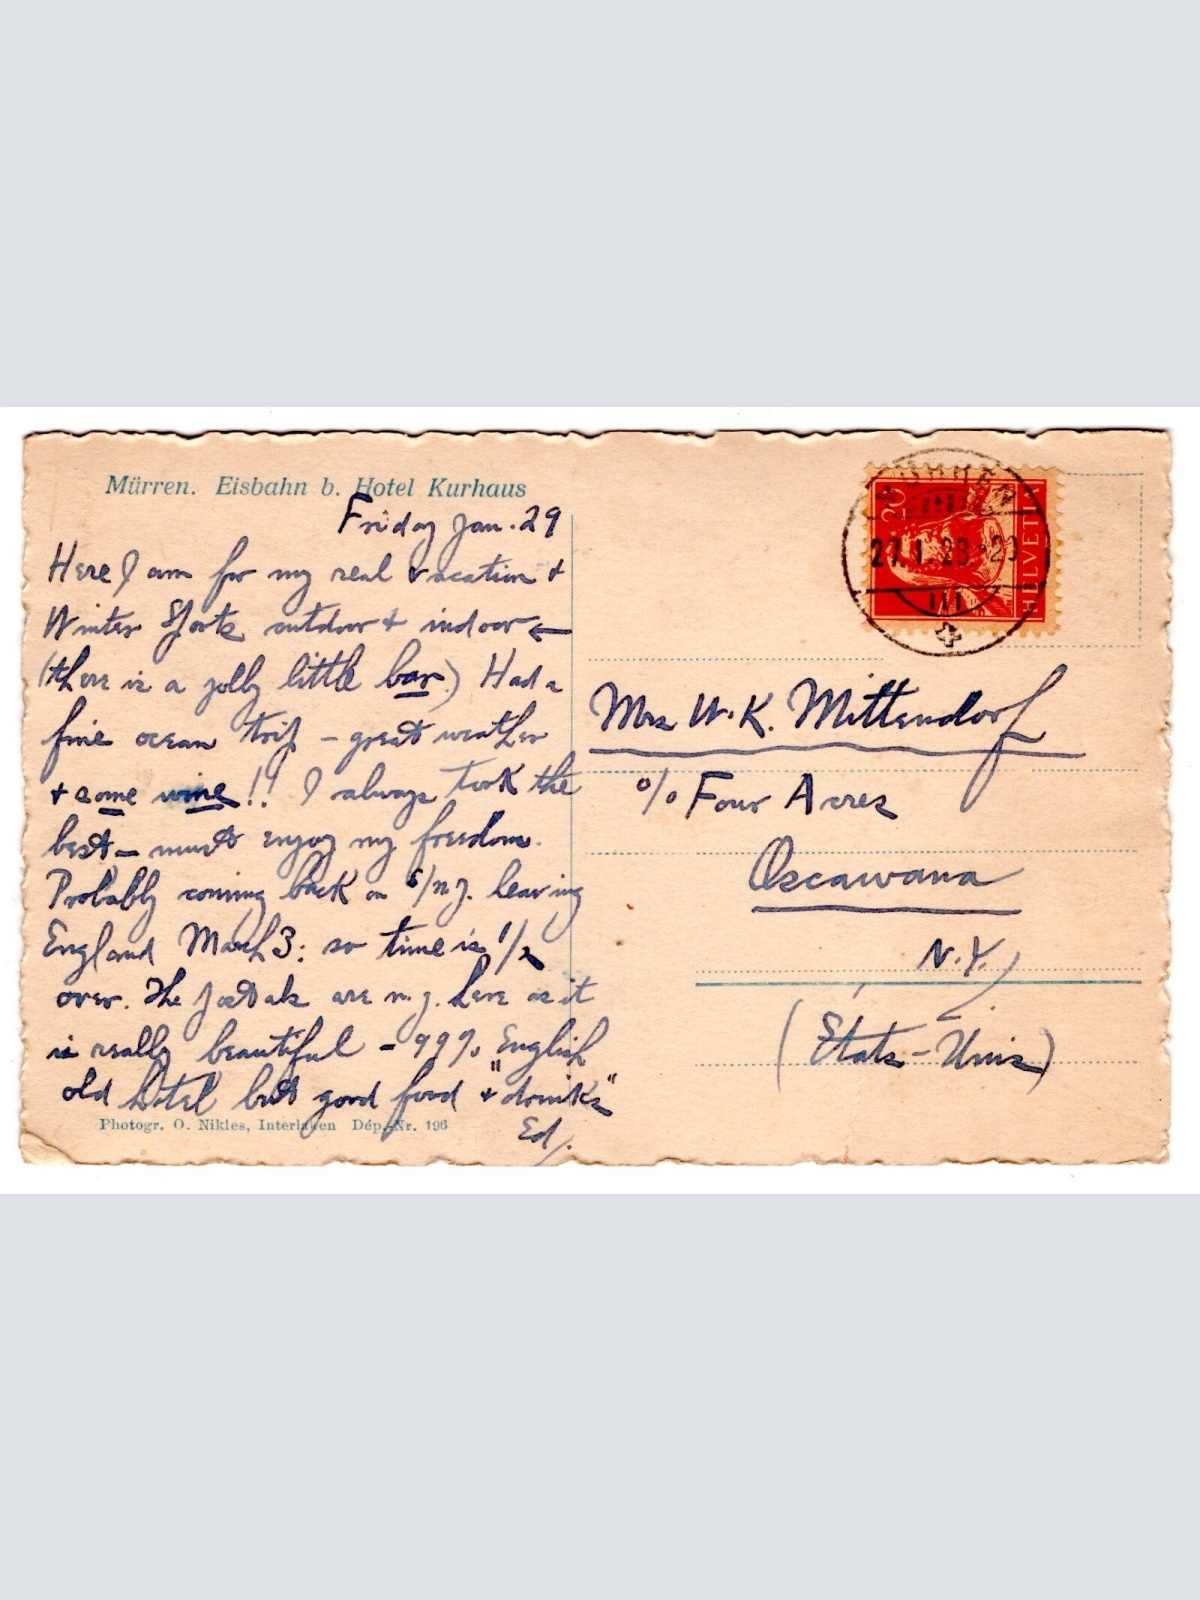 Mürren. Eisbahn b. Hotel Kurhaus
Friday Jan. 29
Here I am for my real vacation +
Winter Sports outdoor + indoor ←
(there is a jolly little bar) Had a
fine ocean trip – great weather
+ some wine!! I always took the
best – must enjoy my freedom.
Probably coming back on leaving
England March 3: so time is 1/2
over. The postals are n.g. here as it
is really beautiful – 99% English
old hotel but good food + "drinks"
Ed.
Photogr. O. Nikles, Interlaken Dép. Nr. 196
MÜRREN
27.I.23.-20
III
20
HELVETIA
Mrs W.K. Mittendorf
% Four Acres
Oscawana
N.Y.
(Etats-Unis)